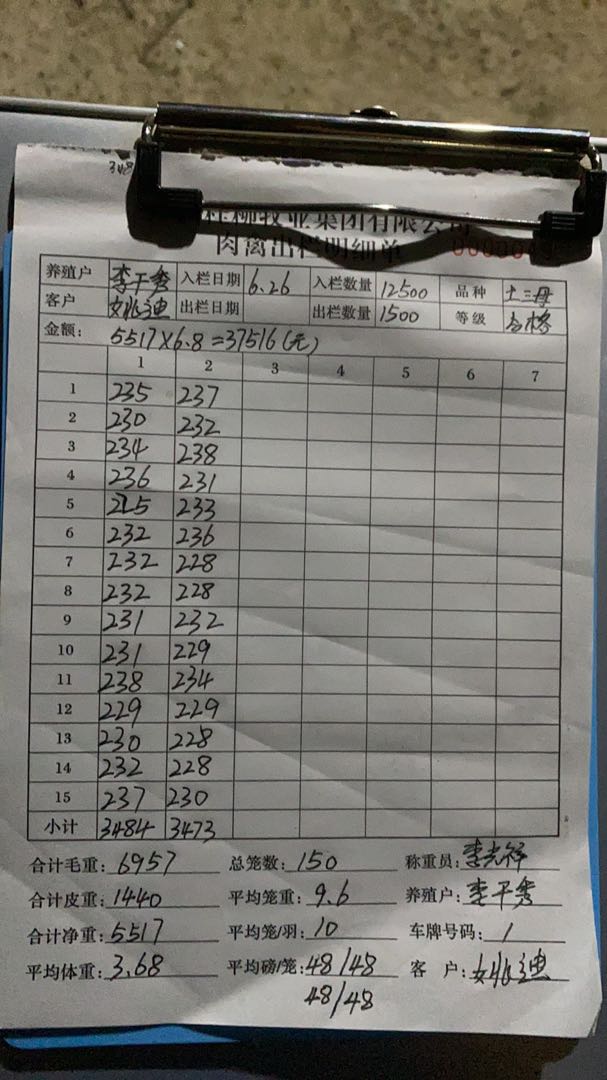 348
桂柳牧业集团有限公司
肉禽出栏明细单
养殖户 李干秀 入栏日期 6.26 入栏数量 12500 品种 土三母
客户 姚迪 出栏日期 出栏数量 1500 等级 合格
金额: 5517×6.8=37516(元)
1 2 3 4 5 6 7
1 235 237
2 230 232
3 234 238
4 236 231
5 225 233
6 232 236
7 232 228
8 232 228
9 231 232
10 231 229
11 238 234
12 229 229
13 230 228
14 232 228
15 237 230
小计 3484 3473
合计毛重: 6957 总笼数: 150 称重员: 李光祥
合计皮重: 1440 平均笼重: 9.6 养殖户: 李干秀
合计净重: 5517 平均笼/羽: 10 车牌号码: 1
平均体重: 3.68 平均磅/笼: 48/48 客 户: 姚迪
48/48